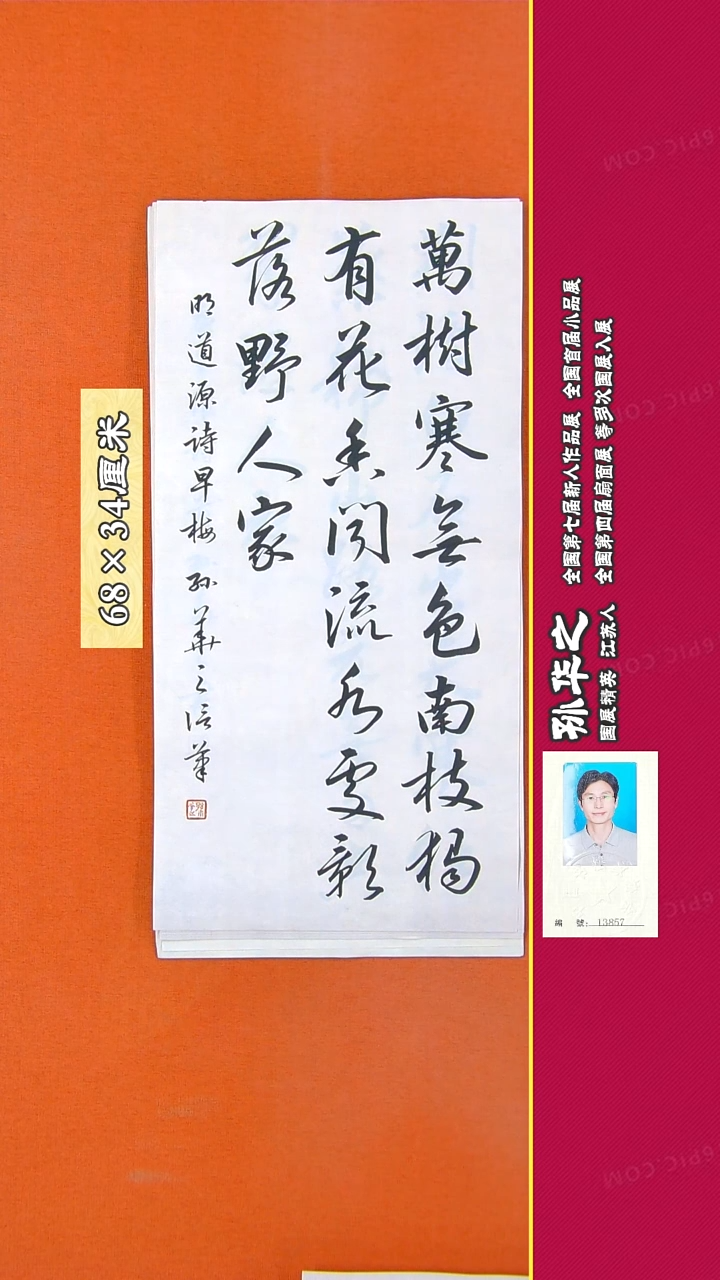 萬樹寒無色南枝獨
有花香聞流水處影
落野人家
明道源詩早梅 孫華之信筆
68×34厘米
孙华之
国展精英 江苏人
全国第七届新人作品展 全国首届小品展
全国第四届扇面展 等多次国展入展
編 號: 13857
6PIC.COM
6PIC.COM
6PIC.COM
6PIC.COM